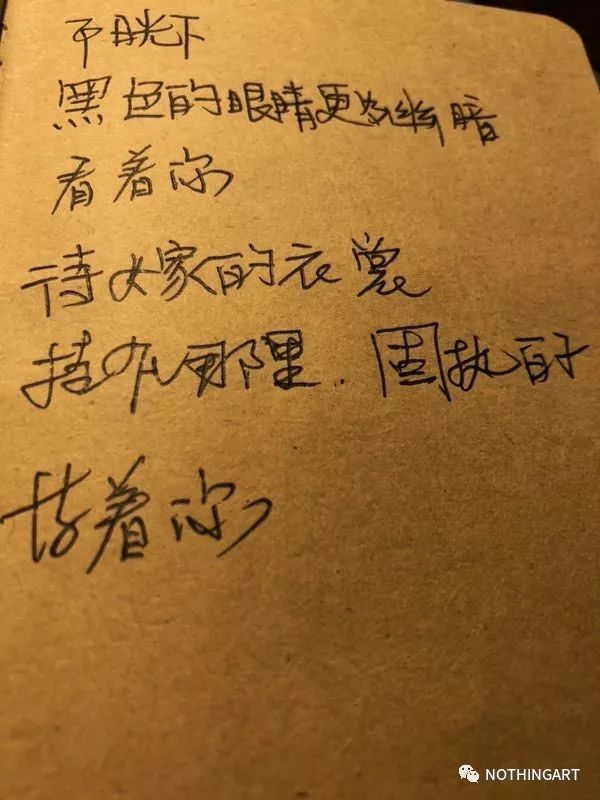 月光下
黑色的眼睛更幽暗
看着你
待嫁的衣裳
挂那里. 固执的
着你
NOTHINGART